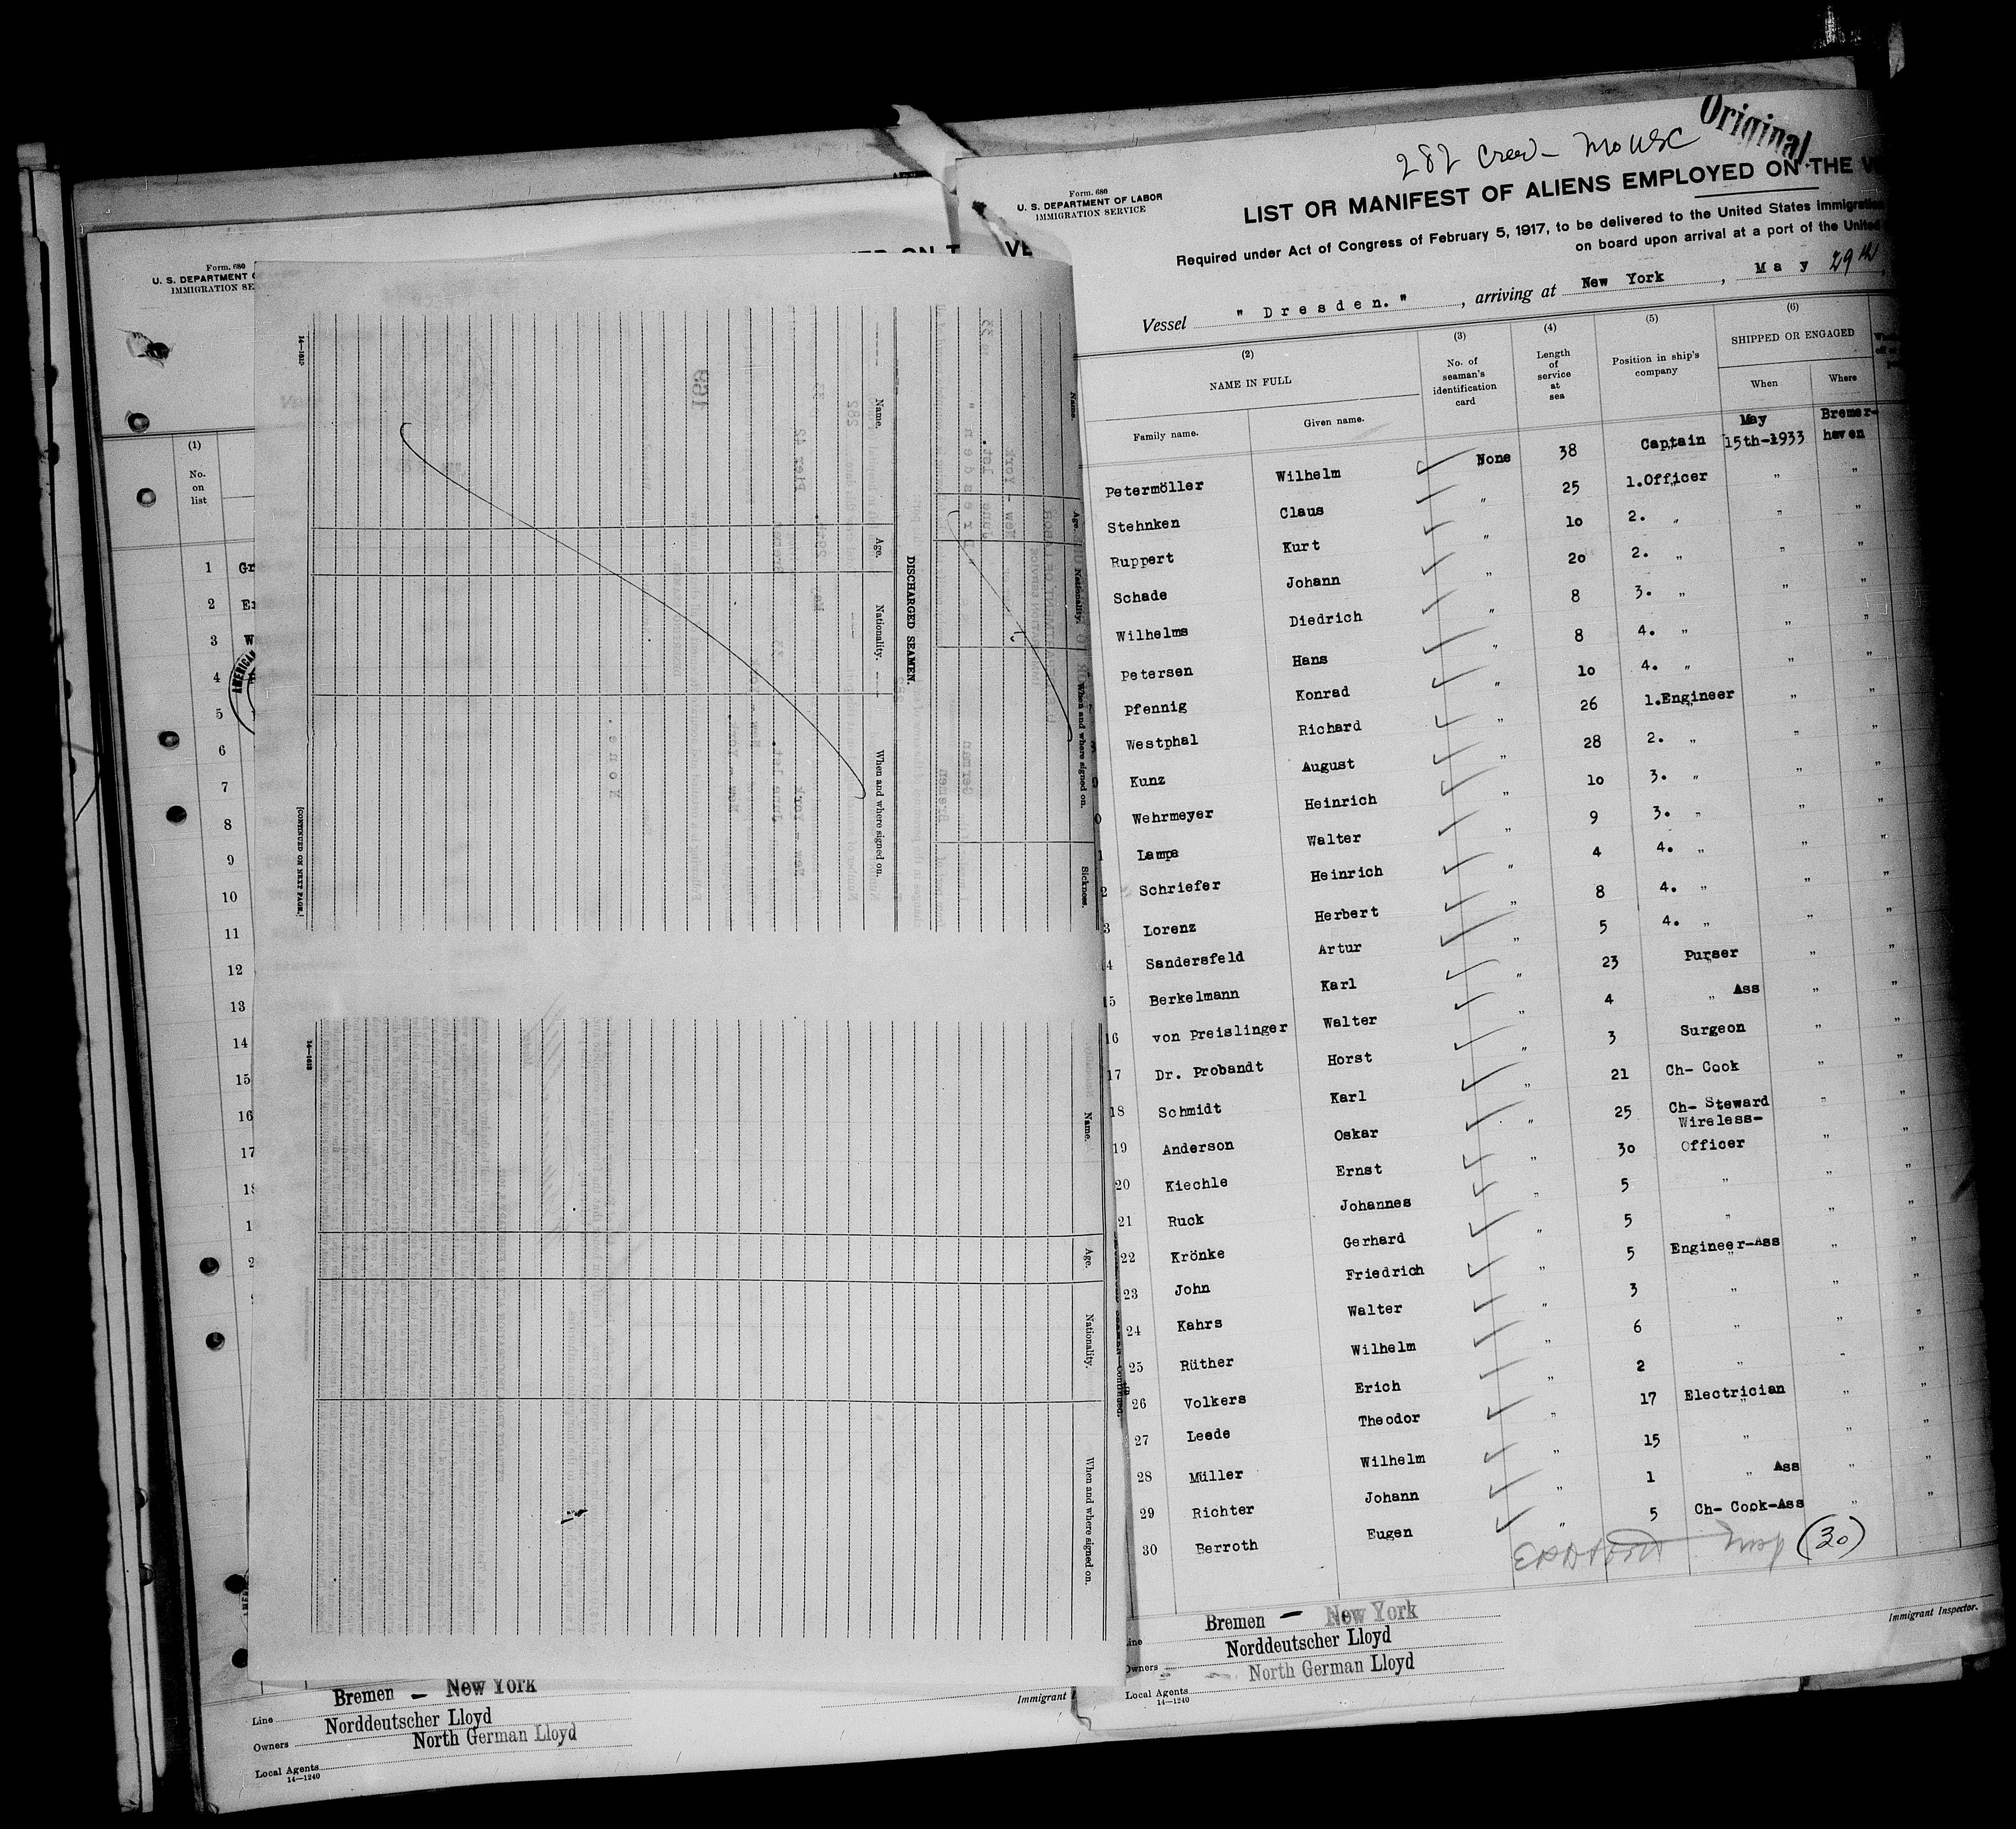 Original
282 Crew -
Form. 680
U. S. DEPARTMENT OF LABOR
IMMIGRATION SERVICE
LIST OR MANIFEST OF ALIENS EMPLOYED ON THE
Required under Act of Congress of February 5, 1917, to be delivered to the United States immigration
on board upon arrival at a port of the United
Vessel " Dresden. " , arriving at New York , May 29th,
(2) (3) (4) (5) (6)
NAME IN FULL No. of seaman's identification card Length of service at sea Position in ship's company SHIPPED OR ENGAGED
Family name. Given name. When Where
Petermöller Wilhelm None 38 Captain May 15th-1933 Bremer-haven
Stehnken Claus " 25 1.Officer " "
Ruppert Kurt " 10 2. " " "
Schade Johann " 20 2. " " "
Wilhelms Diedrich " 8 3. " " "
Petersen Hans " 8 4. " " "
Pfennig Konrad " 10 4. " " "
Westphal Richard " 26 1.Engineer " "
Kunz August " 28 2. " " "
Wehrmeyer Heinrich " 10 3. " " "
Lampe Walter " 9 3. " " "
Schriefer Heinrich " 4 4. " " "
Lorenz Herbert " 8 4. " " "
Sandersfeld Artur " 5 4. " " "
Berkelmann Karl " 23 Purser " "
16 von Preislinger Walter " 4 " Ass " "
17 Dr. Probandt Horst " 3 Surgeon " "
18 Schmidt Karl " 21 Ch- Cook " "
19 Anderson Oskar " 25 Ch- Steward " "
20 Kiechle Ernst " 30 Wireless-Officer " "
21 Ruck Johannes " 5 " " "
22 Krönke Gerhard " 5 " " "
23 John Friedrich " 5 Engineer-Ass " "
24 Kahrs Walter " 3 " " "
25 Rüther Wilhelm " 6 " " "
26 Volkers Erich " 2 " " "
27 Leede Theodor " 17 Electrician " "
28 Müller Wilhelm " 15 " " "
29 Richter Johann " 1 " Ass " "
30 Berroth Eugen " 5 Ch- Cook-Ass " "
(30)
Line Bremen - New York
Owners Norddeutscher Lloyd
Local Agents North German Lloyd
14-1240
Immigrant Inspector.
Form. 680
U. S. DEPARTMENT
IMMIGRATION SE
(1)
No.
on
list
1 Gr
2
3 W
4
5
6
7
8
9
10
11
12
13
14
15
16
17
AMERICAN
Line Bremen - New York
Owners Norddeutscher Lloyd
Local Agents North German Lloyd
14-1240
Immigrant
Name. Age. Nationality. When and where signed on. Sickness.
DISCHARGED SEAMEN.
Name. Age. Nationality. When and where signed on.
[CONTINUED ON NEXT PAGE.]
Name. Age. Nationality. When and where signed on.